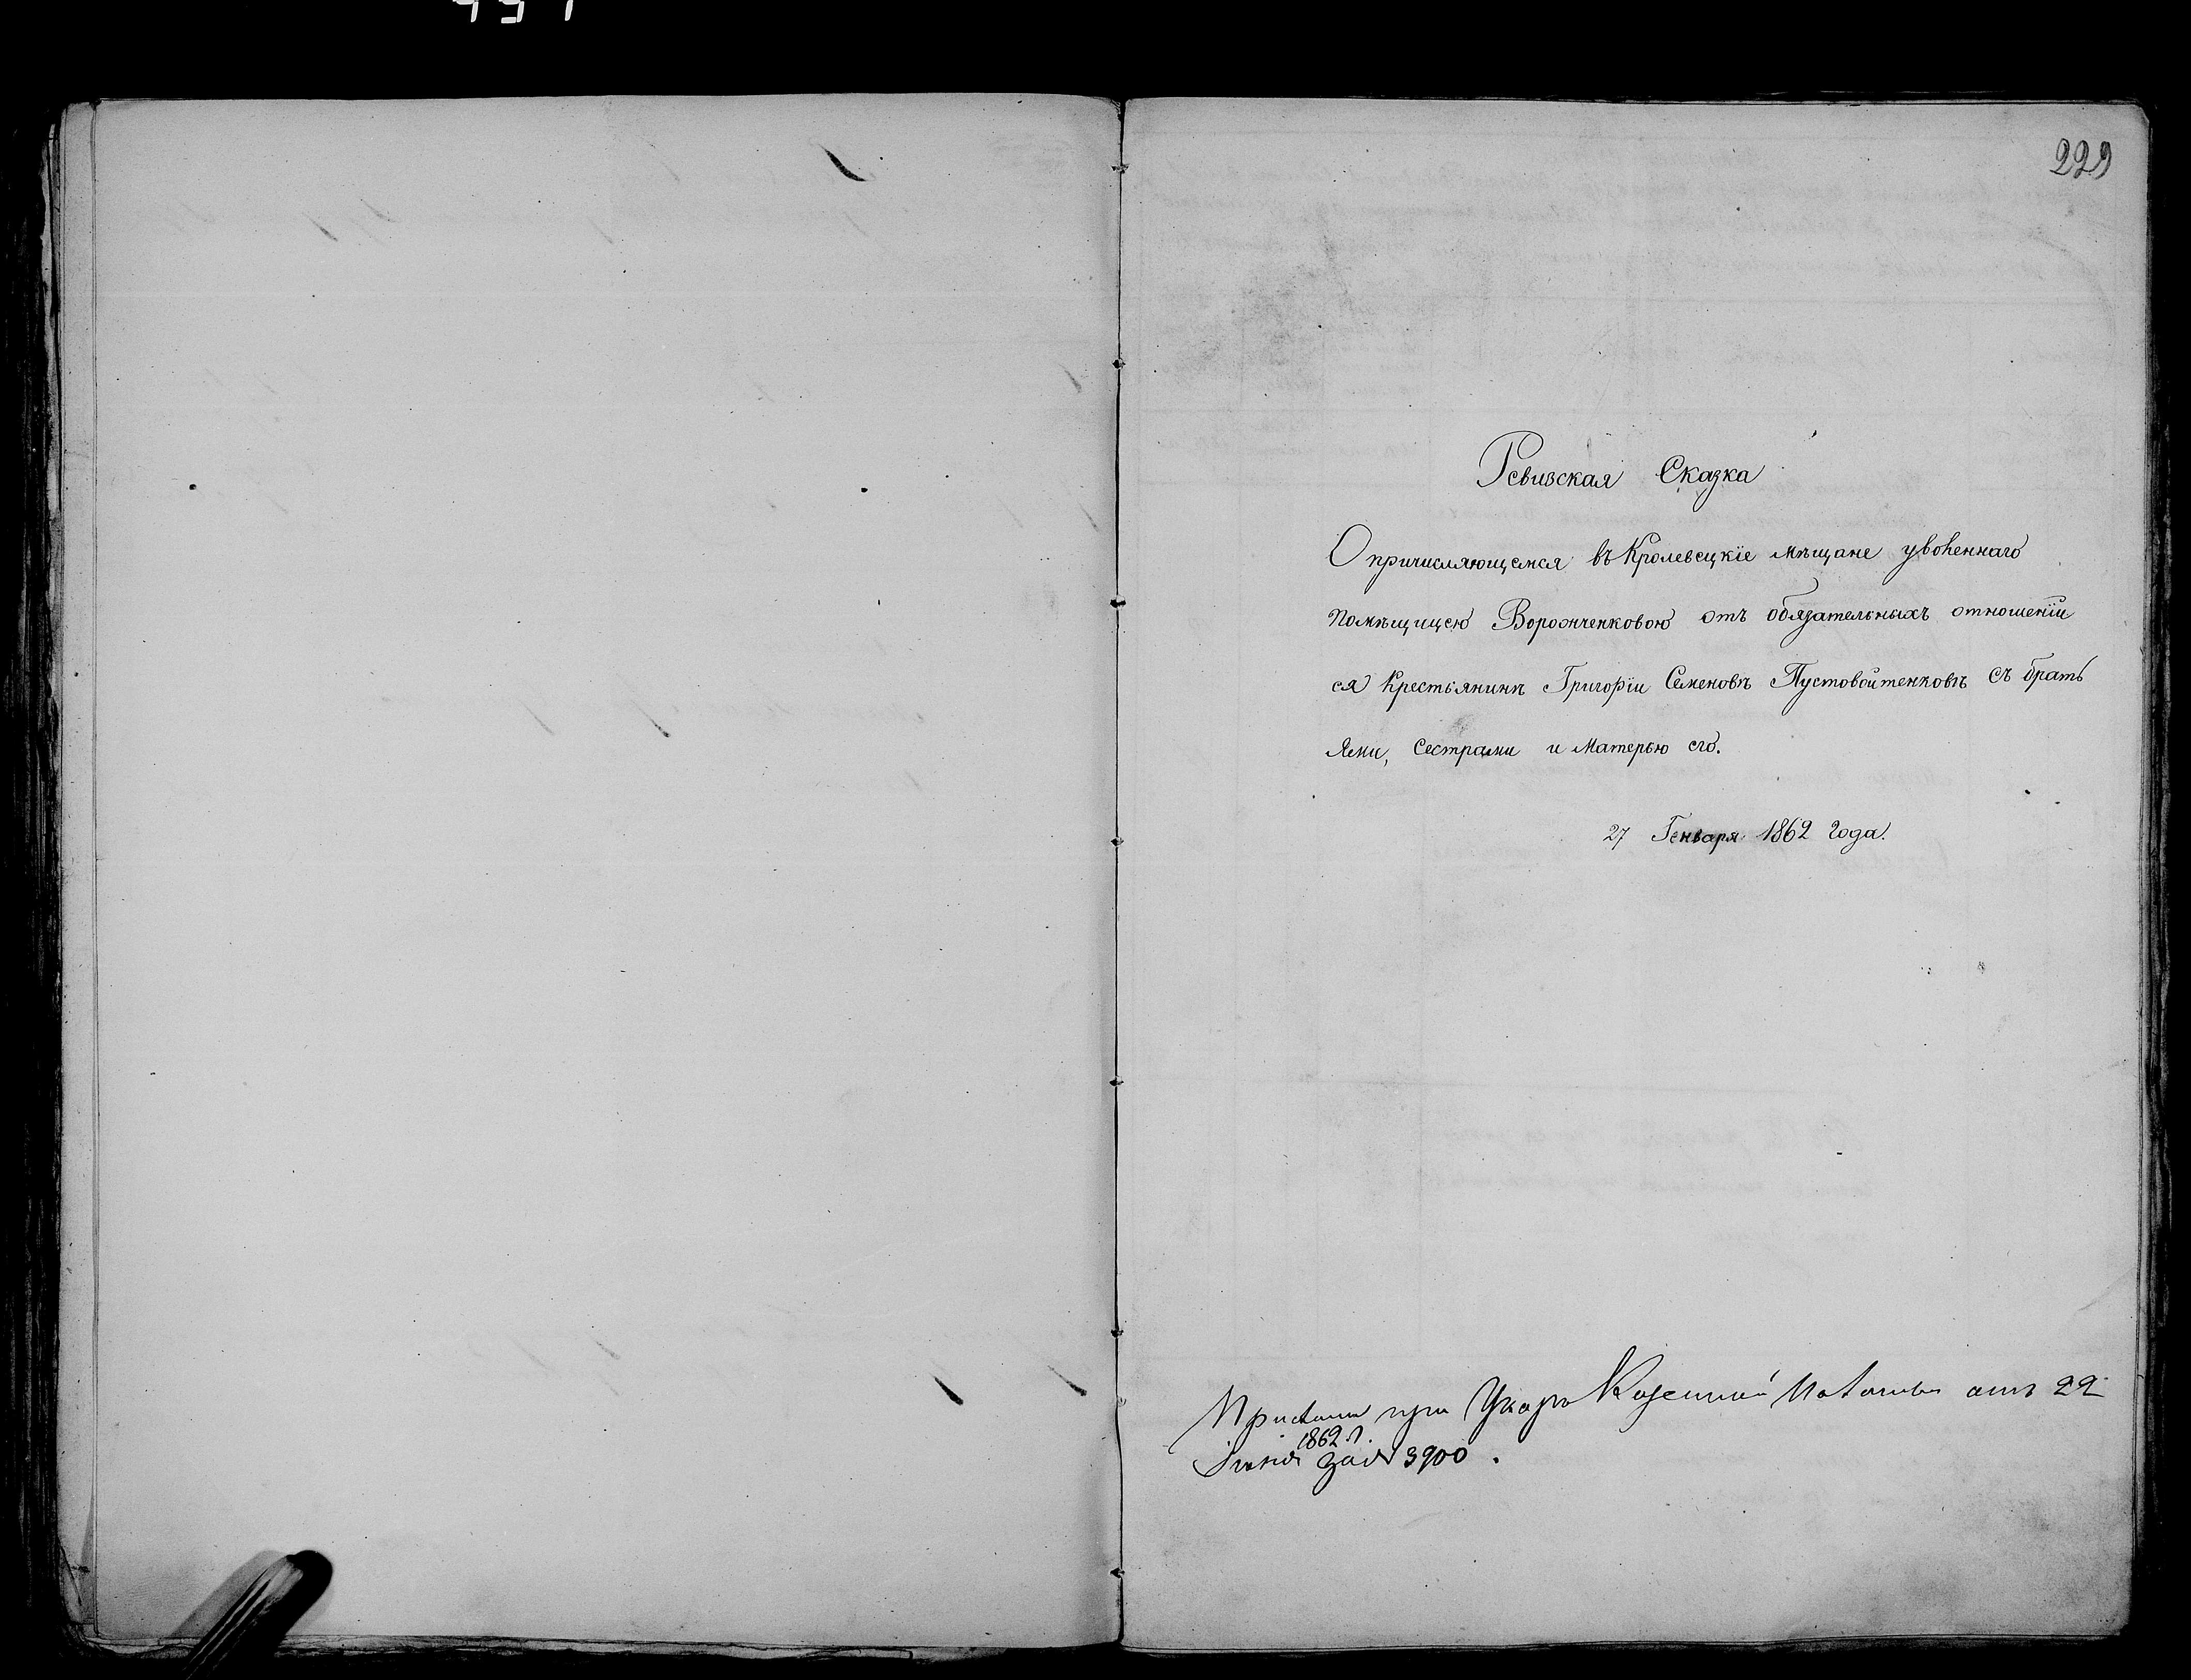 229
Ревизская Сказка
О причисляющемся въ Кролевецкіе мѣщане уволеннаго
помѣщицею Ворожченковою отъ обязательныхъ отношеніи
ея крестьянинъ Григоріи Семеновъ Пустовойтенковъ съ брать
ями, сестрами и матерью его.
27 Генваря 1862 года.
при Указѣ Казенной Палаты отъ 22
1862 г.
Іюня за № 3900.